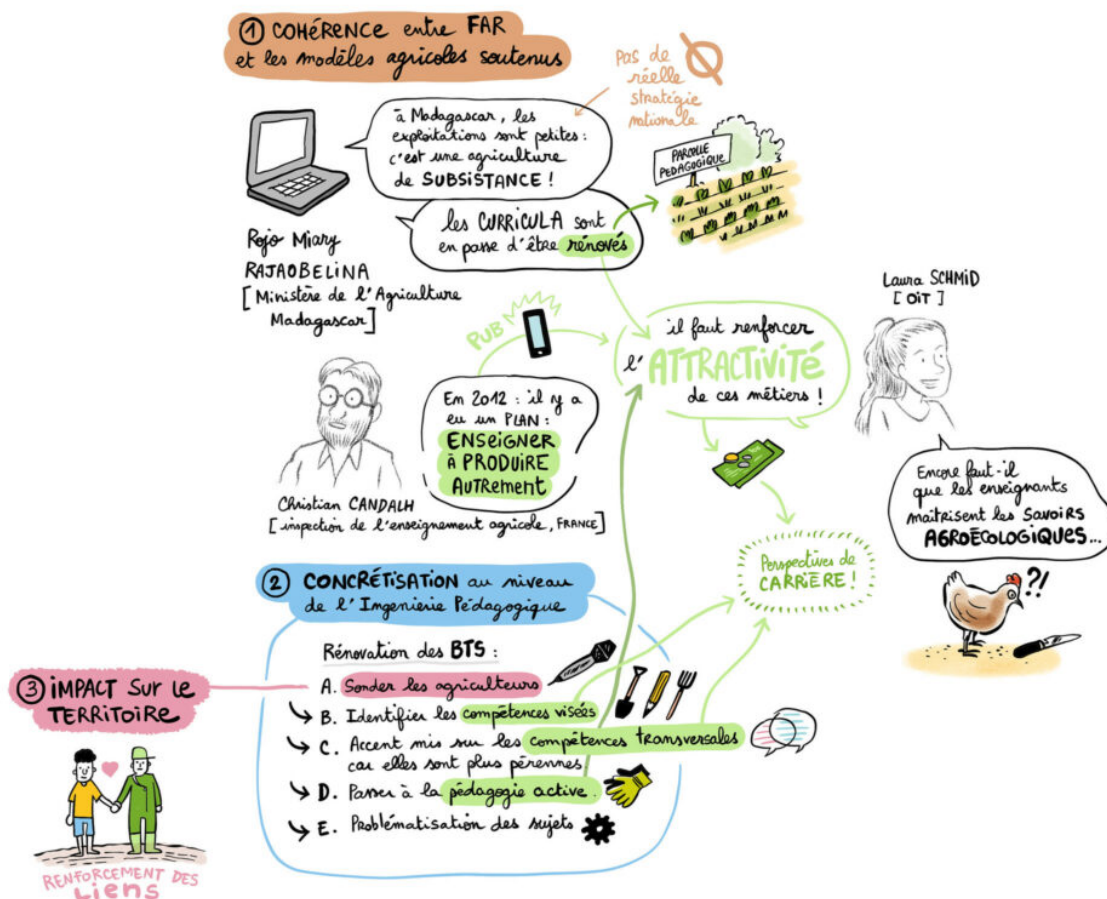 ① COHÉRENCE entre FAR
et les modèles agricoles soutenus
pas de
réelle
stratégie
nationale
à Madagascar, les
exploitations sont petites :
c'est une agriculture
de SUBSISTANCE !
PARCELLE
PEDAGOGIQUE
les CURRICULA sont
en passe d'être rénovés
Rojo Miary
RAJAOBELINA
[Ministère de l'Agriculture
Madagascar]
Laura SCHMID
[OIT]
PUB
il faut renforcer
l'ATTRACTIVITÉ
de ces métiers !
En 2012 : il y a
eu un PLAN :
ENSEIGNER
à PRODUIRE
AUTREMENT
Christian CANDALH
[inspection de l'enseignement agricole, FRANCE]
Encore faut-il
que les enseignants
maîtrisent les SAVOIRS
AGROÉCOLOGIQUES...
?!
Perspectives de
CARRIÈRE !
② CONCRÉTISATION au niveau
de l'Ingenierie Pédagogique
Rénovation des BTS :
A. Sonder les agriculteurs
B. Identifier les compétences visées
C. Accent mis sur les compétences transversales
car elles sont plus pérennes
D. Passer à la pédagogie active.
E. Problématisation des sujets
③ IMPACT SUR LE
TERRITOIRE
RENFORCEMENT DES
LIENS